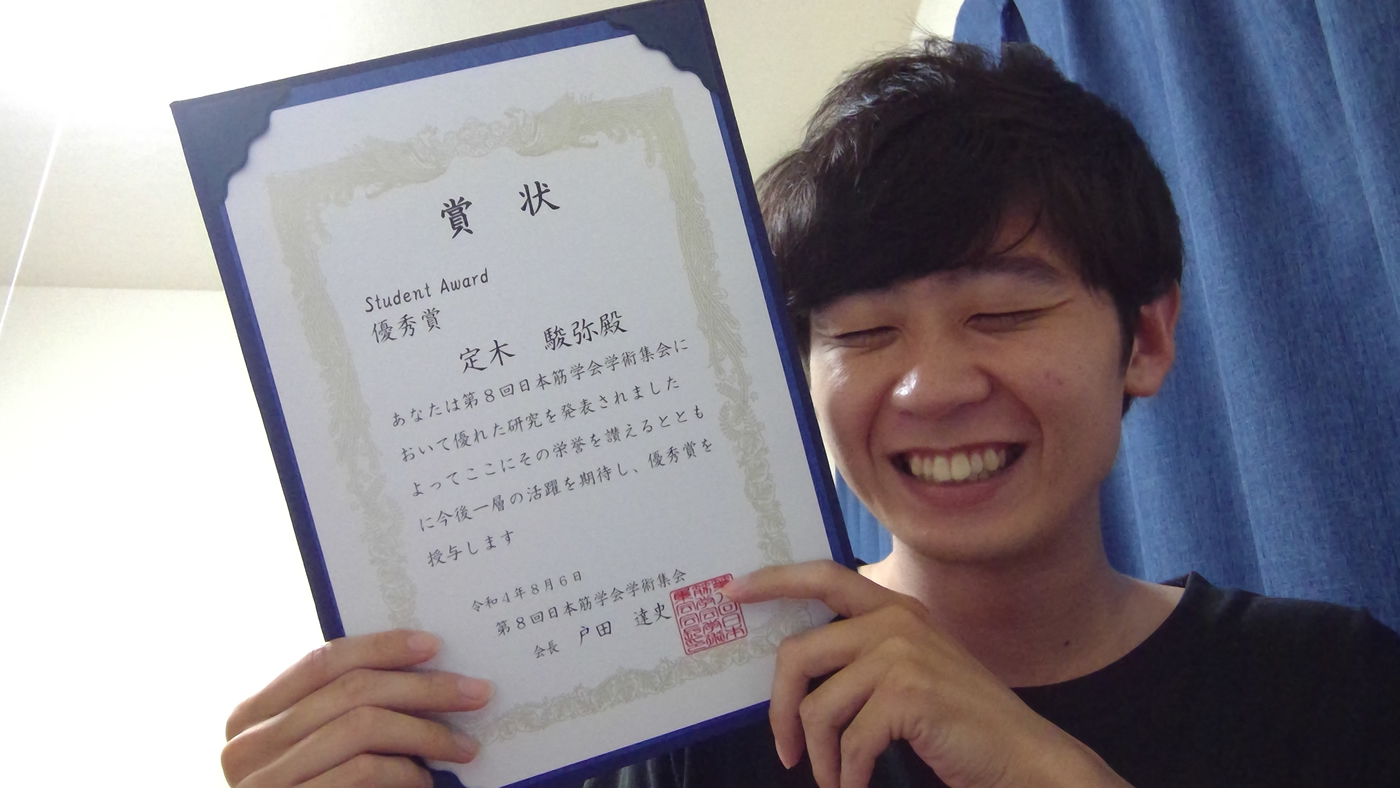 賞 状
Student Award
優秀賞
定木 駿弥殿
あなたは第8回日本筋学会学術集会に
おいて優れた研究を発表されました
よってここにその栄誉を讃えるととも
に今後一層の活躍を期待し、優秀賞を
授与します
令和4年8月6日
第8回日本筋学会学術集会
会長 戸田 達史